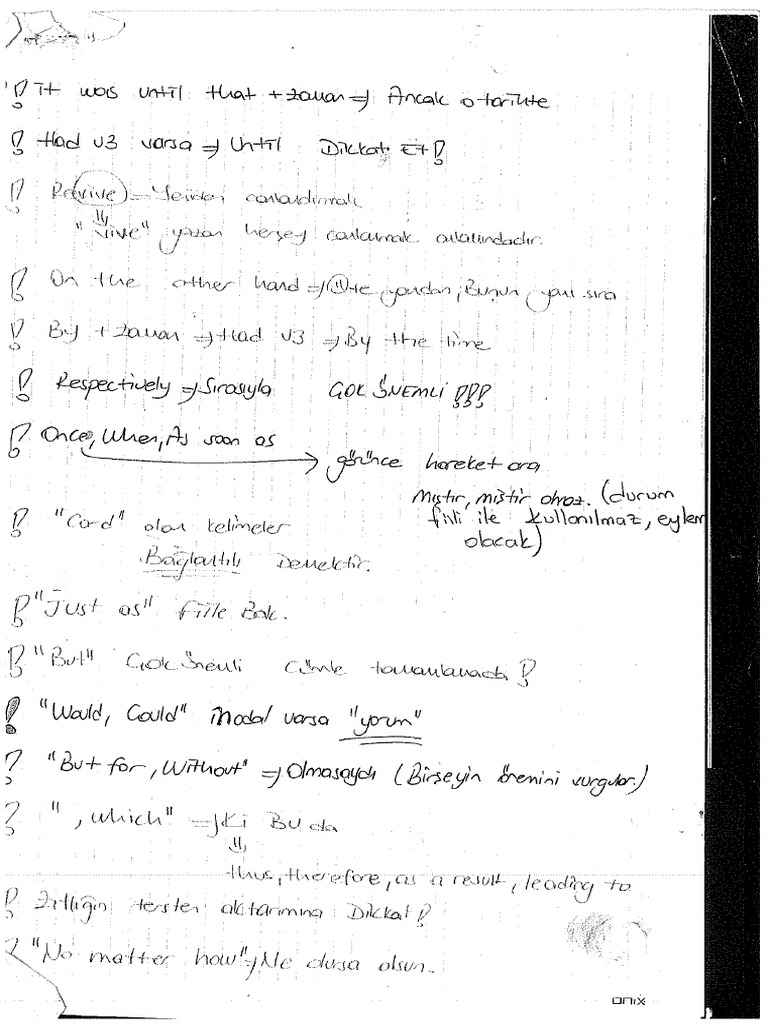 ! it was until that + zaman => Ancak o tarihte
! Had v3 varsa => Until Dikkat Et!
! Revive => Yeniden canlandırmak
"vive" yazan herşey canlanmak anlamındadır.
! On the other hand => Öte yandan, Bunun yanı sıra
! By + zaman => Had v3 => By the time
! Respectively => Sırasıyla ÇOK ÖNEMLİ !!!
! Once, When, As soon as
görünce hareket ara
mıştır, miştir olmaz. (durum
fiili ile kullanılmaz, eylem
olacak)
! "Cord" olan kelimeler
Bağlantılı Demektir.
! "Just as" fiile Bak.
! "But" ÇOK Önemli cümle tamamlamada!
! "Would, Could" modal varsa "yorum"
! "But for, Without" => Olmasaydı (Birşeyin önemini vurgular)
! ", which" => Ki BU da
thus, therefore, as a result, leading to
! Zıtlığın tersten aktarımına Dikkat!
! "No matter how" => Ne olursa olsun.
onix